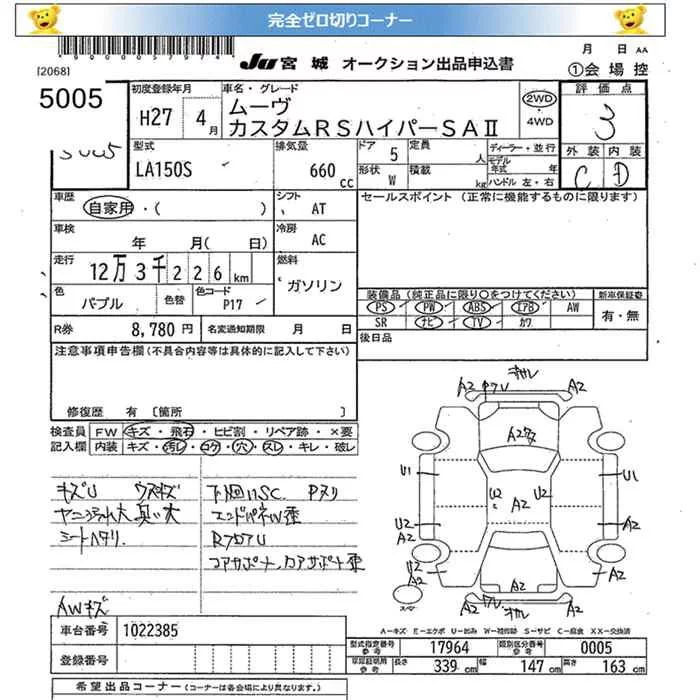 完全ゼロ切りコーナー
[2068]
JU 宮城 オークション出品申込書
月 日 AA
①会場控
5005
初度登録年月
H27 4月
車名・グレード
ムーヴ
カスタムRSハイパーSAⅡ
2WD
・4WD
評価点
3
外装 内装
C D
型式
LA150S
排気量
660cc
ドア 5
定員 人
形状 W
積載 kg
ディーラー・並行
モデル年式 年
ハンドル 左・右
車歴
自家用・( )
シフト
AT
セールスポイント(正常に機能するものに限ります)
車検
年 月( 日)
冷房
AC
走行
12万3千226km
燃料
ガソリン
色
パープル
色替
色コード
P17
装備品(純正品に限り○をつけてください)
新車保証書
PS PW ABS エアB AW
SR ナビ TV カワ
有・無
R券 8,780円
名変通知期限 月 日
後日品
注意事項申告欄(不具合内容等は具体的に記入して下さい)
修復歴 有 [箇所 ]
検査員 FW キズ・飛石・ヒビ割・リペア跡・×要
記入欄 内装 キズ・汚レ・コゲ・穴・スレ・キレ・破レ
キズU ウスキズ
シートヘタリ.
AWキズ
下回サビSC. Pヌリ
エンドパネW歪
コアサポート.
A2 A2
A2
U1 U1
U2 A2 U2
U2 A2
A2
U2
A2 A2
A2
A2 A2
スペア
A-キズ E-エクボ U-凹み W-補修跡 S-サビ C-腐食 XX-交換済
車台番号 1022385
登録番号
型式指定番号参考 17964 類別区分番号参考 0005
車庫証明用参考 長さ 339cm 幅 147cm 高さ 163cm
希望出品コーナー(コーナーは各会場により異なります。)